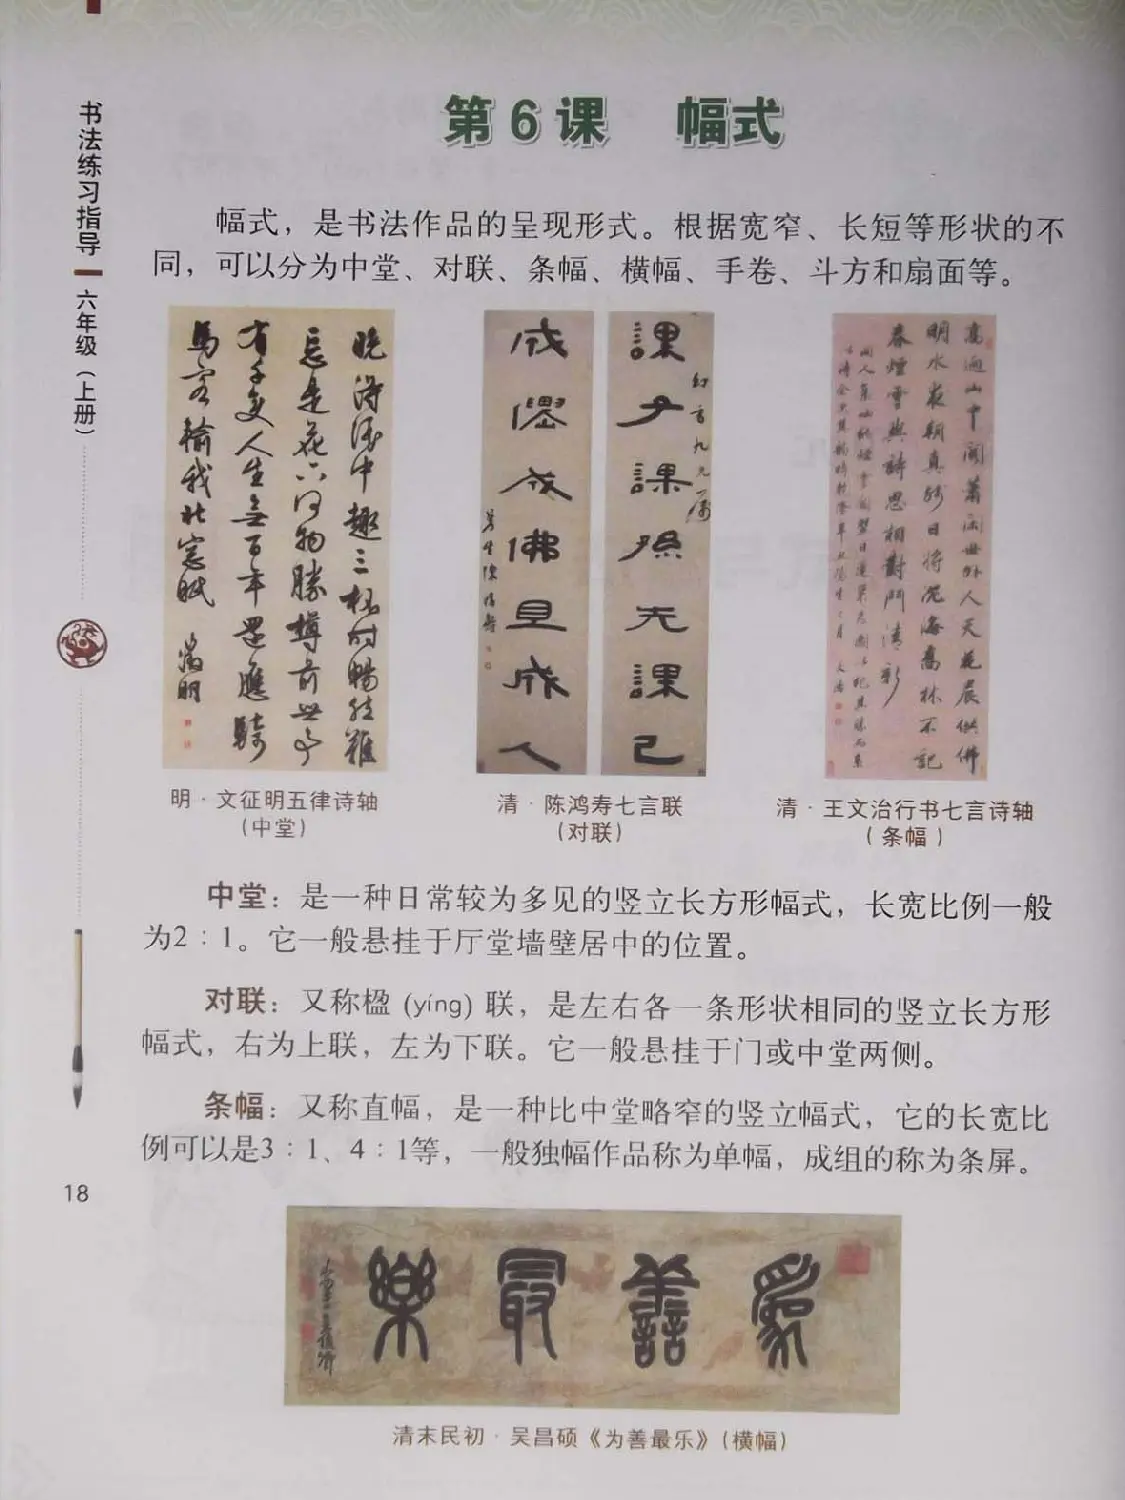 第6课 幅式
幅式，是书法作品的呈现形式。根据宽窄、长短等形状的不
同，可以分为中堂、对联、条幅、横幅、手卷、斗方和扇面等。
晚得酒中趣三杯时畅然难
忘是花下何物胜樽前世事
有千变人生无百年还应骑
马客输我北窗眠
徵明
課子課孫先課己
成僊成佛且成人
明·文征明五律诗轴
（中堂）
清·陈鸿寿七言联
（对联）
清·王文治行书七言诗轴
（条幅）
中堂：是一种日常较为多见的竖立长方形幅式，长宽比例一般
为2：1。它一般悬挂于厅堂墙壁居中的位置。
对联：又称楹 (yíng) 联，是左右各一条形状相同的竖立长方形
幅式，右为上联，左为下联。它一般悬挂于门或中堂两侧。
条幅：又称直幅，是一种比中堂略窄的竖立幅式，它的长宽比
例可以是3：1、4：1等，一般独幅作品称为单幅，成组的称为条屏。
爲善最樂
清末民初·吴昌硕《为善最乐》（横幅）
书法练习指导
六年级（上册）
18